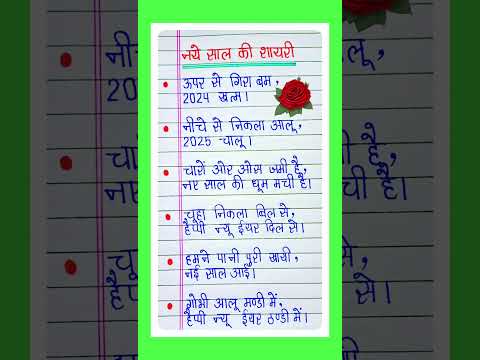 नये साल की शायरी
ऊपर से गिरा बम,
2024 खत्म।
नीचे से निकला आलू,
2025 चालू।
चारो ओर ओस जमी है,
नए साल की धूम मची है।
चूहा निकला बिल से,
हैप्पी न्यू ईयर दिल से।
हमने पानी पुरी खायी,
नई साल आई।
गोभी आलू मण्डी में,
हैप्पी न्यू ईयर ठण्डी में।